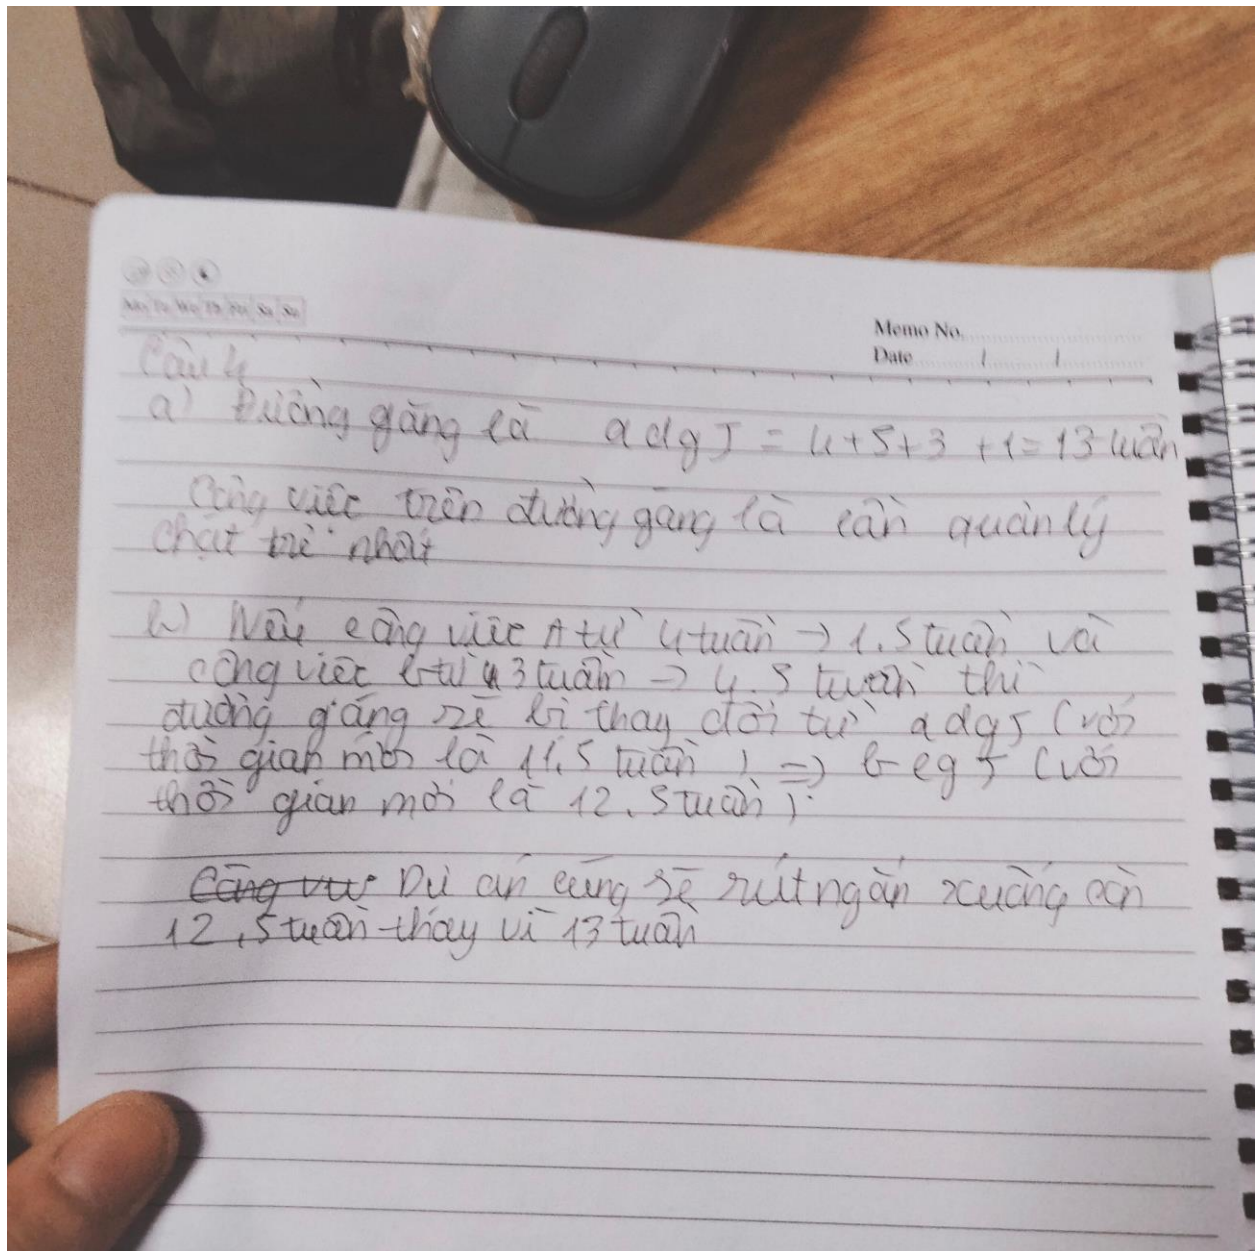 Mo Tu We Th Fri Sa Su
Memo No.
Date / /
Câu 4
a) Đường găng là a d g J = 4+5+3 +1 = 13 tuần
Công việc trên đường găng là cần quản lý
chặt trẽ nhất
b) Nếu công việc A từ 4 tuần → 1.5 tuần và
công việc b từ 3 tuần → 4.5 tuần thì
đường găng sẽ bị thay đổi từ a d g J (với
thời gian mới là 11.5 tuần) => b e g J (với
thời gian mới là 12.5 tuần).
Dự án cũng sẽ rút ngắn xuống còn
12,5 tuần thay vì 13 tuần